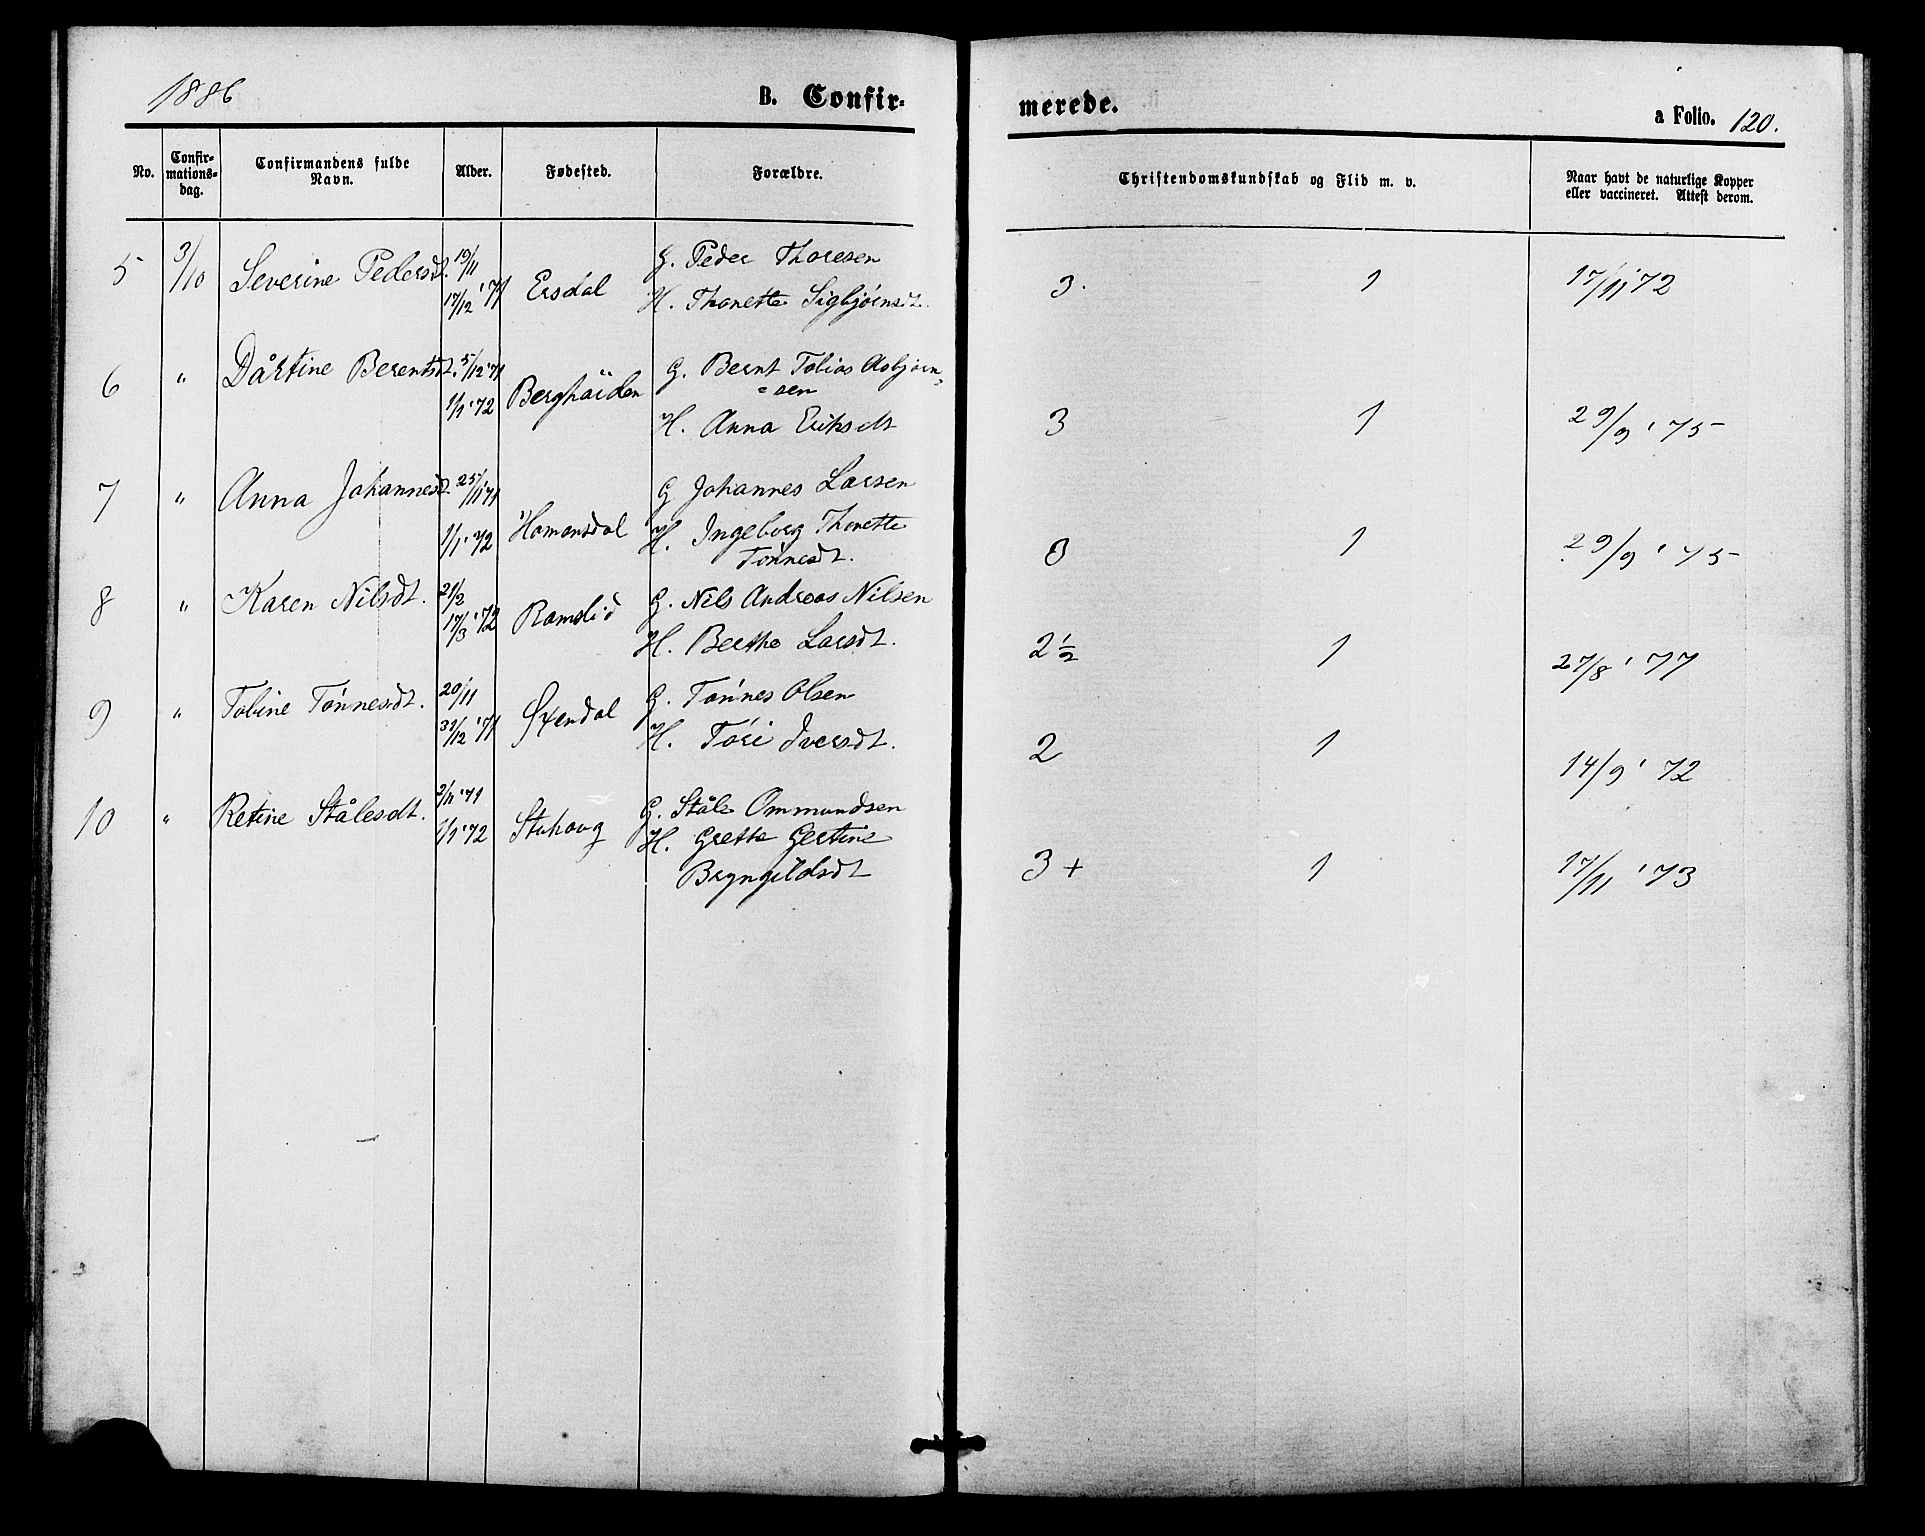 1886
B. Confir-
merede.
a Folio. 120.
No.
Confir-
mations-
dag.
Confirmandens fulde
Navn.
Alder.
Fødested.
Forældre.
Christendomskundskab og Flid m. v.
Naar havt de naturlige Kopper
eller vaccineret. Attest derom.
5 3/10 Severine Pedersdt. 19/11 17/12 '71 Ersdal G. Peder Thoresen
H. Thonette Sigbjørnsdt. 3. 1 17/11 '72
6 " Dårtine Berentsdt. 5/12 '71 1/1 '72 Berghöiden G. Bernt Tobias Asbjørn=
=sen
H. Anna Eriksdt 3 1 29/9 '75
7 " Anna Johannesdt. 25/11 '71 1/1 '72 Homansdal G Johannes Larsen
H. Ingeborg Thonette
Tønnesdt. 3 1 29/9 '75
8 " Karen Nilsdt. 21/2 17/3 '72 Ramslid G. Nils Andreas Nilsen
H. Berthe Larsdt. 2½ 1 27/8 '77
9 " Tobine Tønnesdt. 20/11 31/12 '71 Øxendal G. Tønnes Olsen
H. Tøri Iversdt. 2 1 14/9 '72
10 " Retine Stålesdt. 2/11 '71 1/1 '72 Stuhoug G. Ståle Ommundsen
H. Grette Gertine
Bryngildsdt 3+ 1 17/11 '73